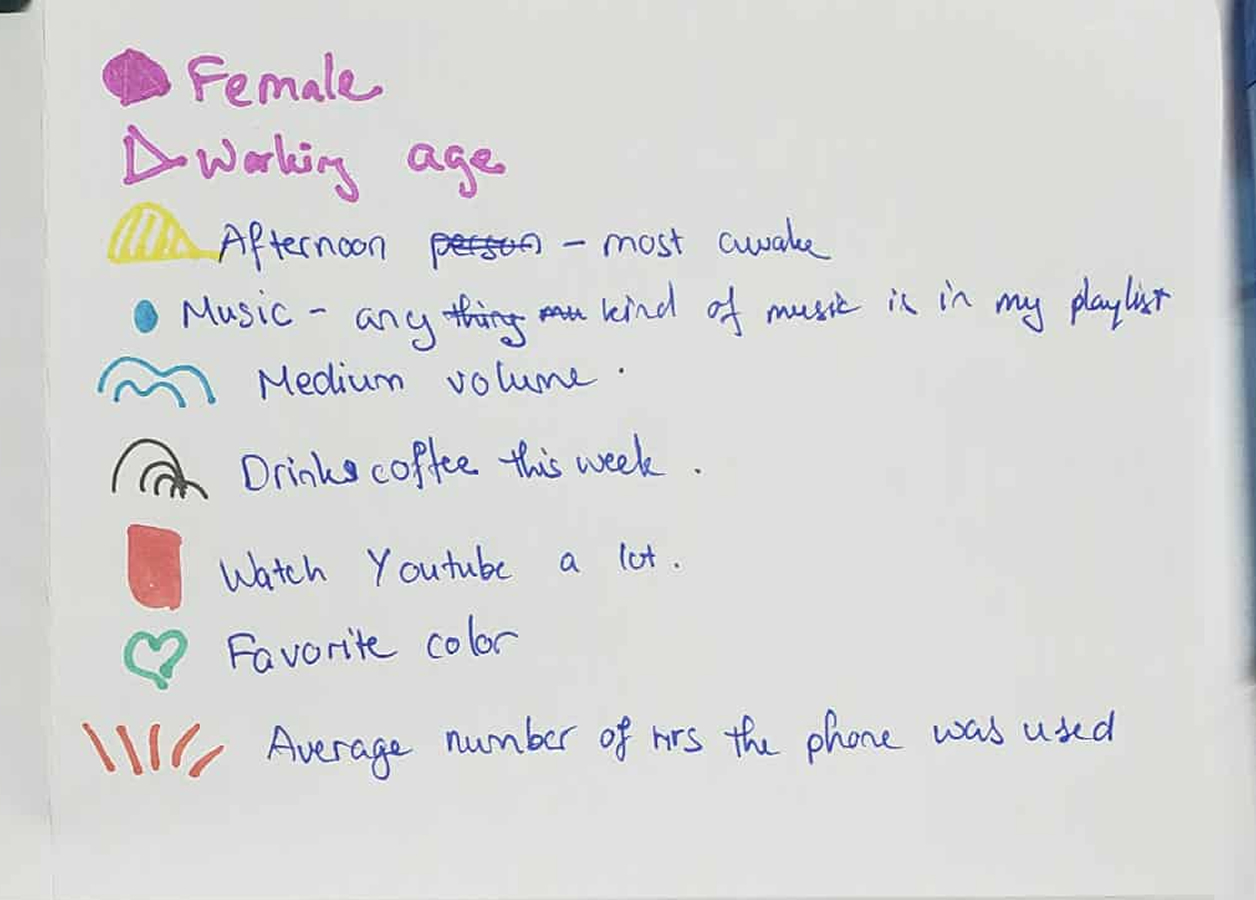 Female
Working age
Afternoon person - most awake
Music - any thing mu kind of music is in my playlist
Medium volume.
Drinks coffee this week.
Watch Youtube a lot.
Favorite color
Average number of hrs the phone was used